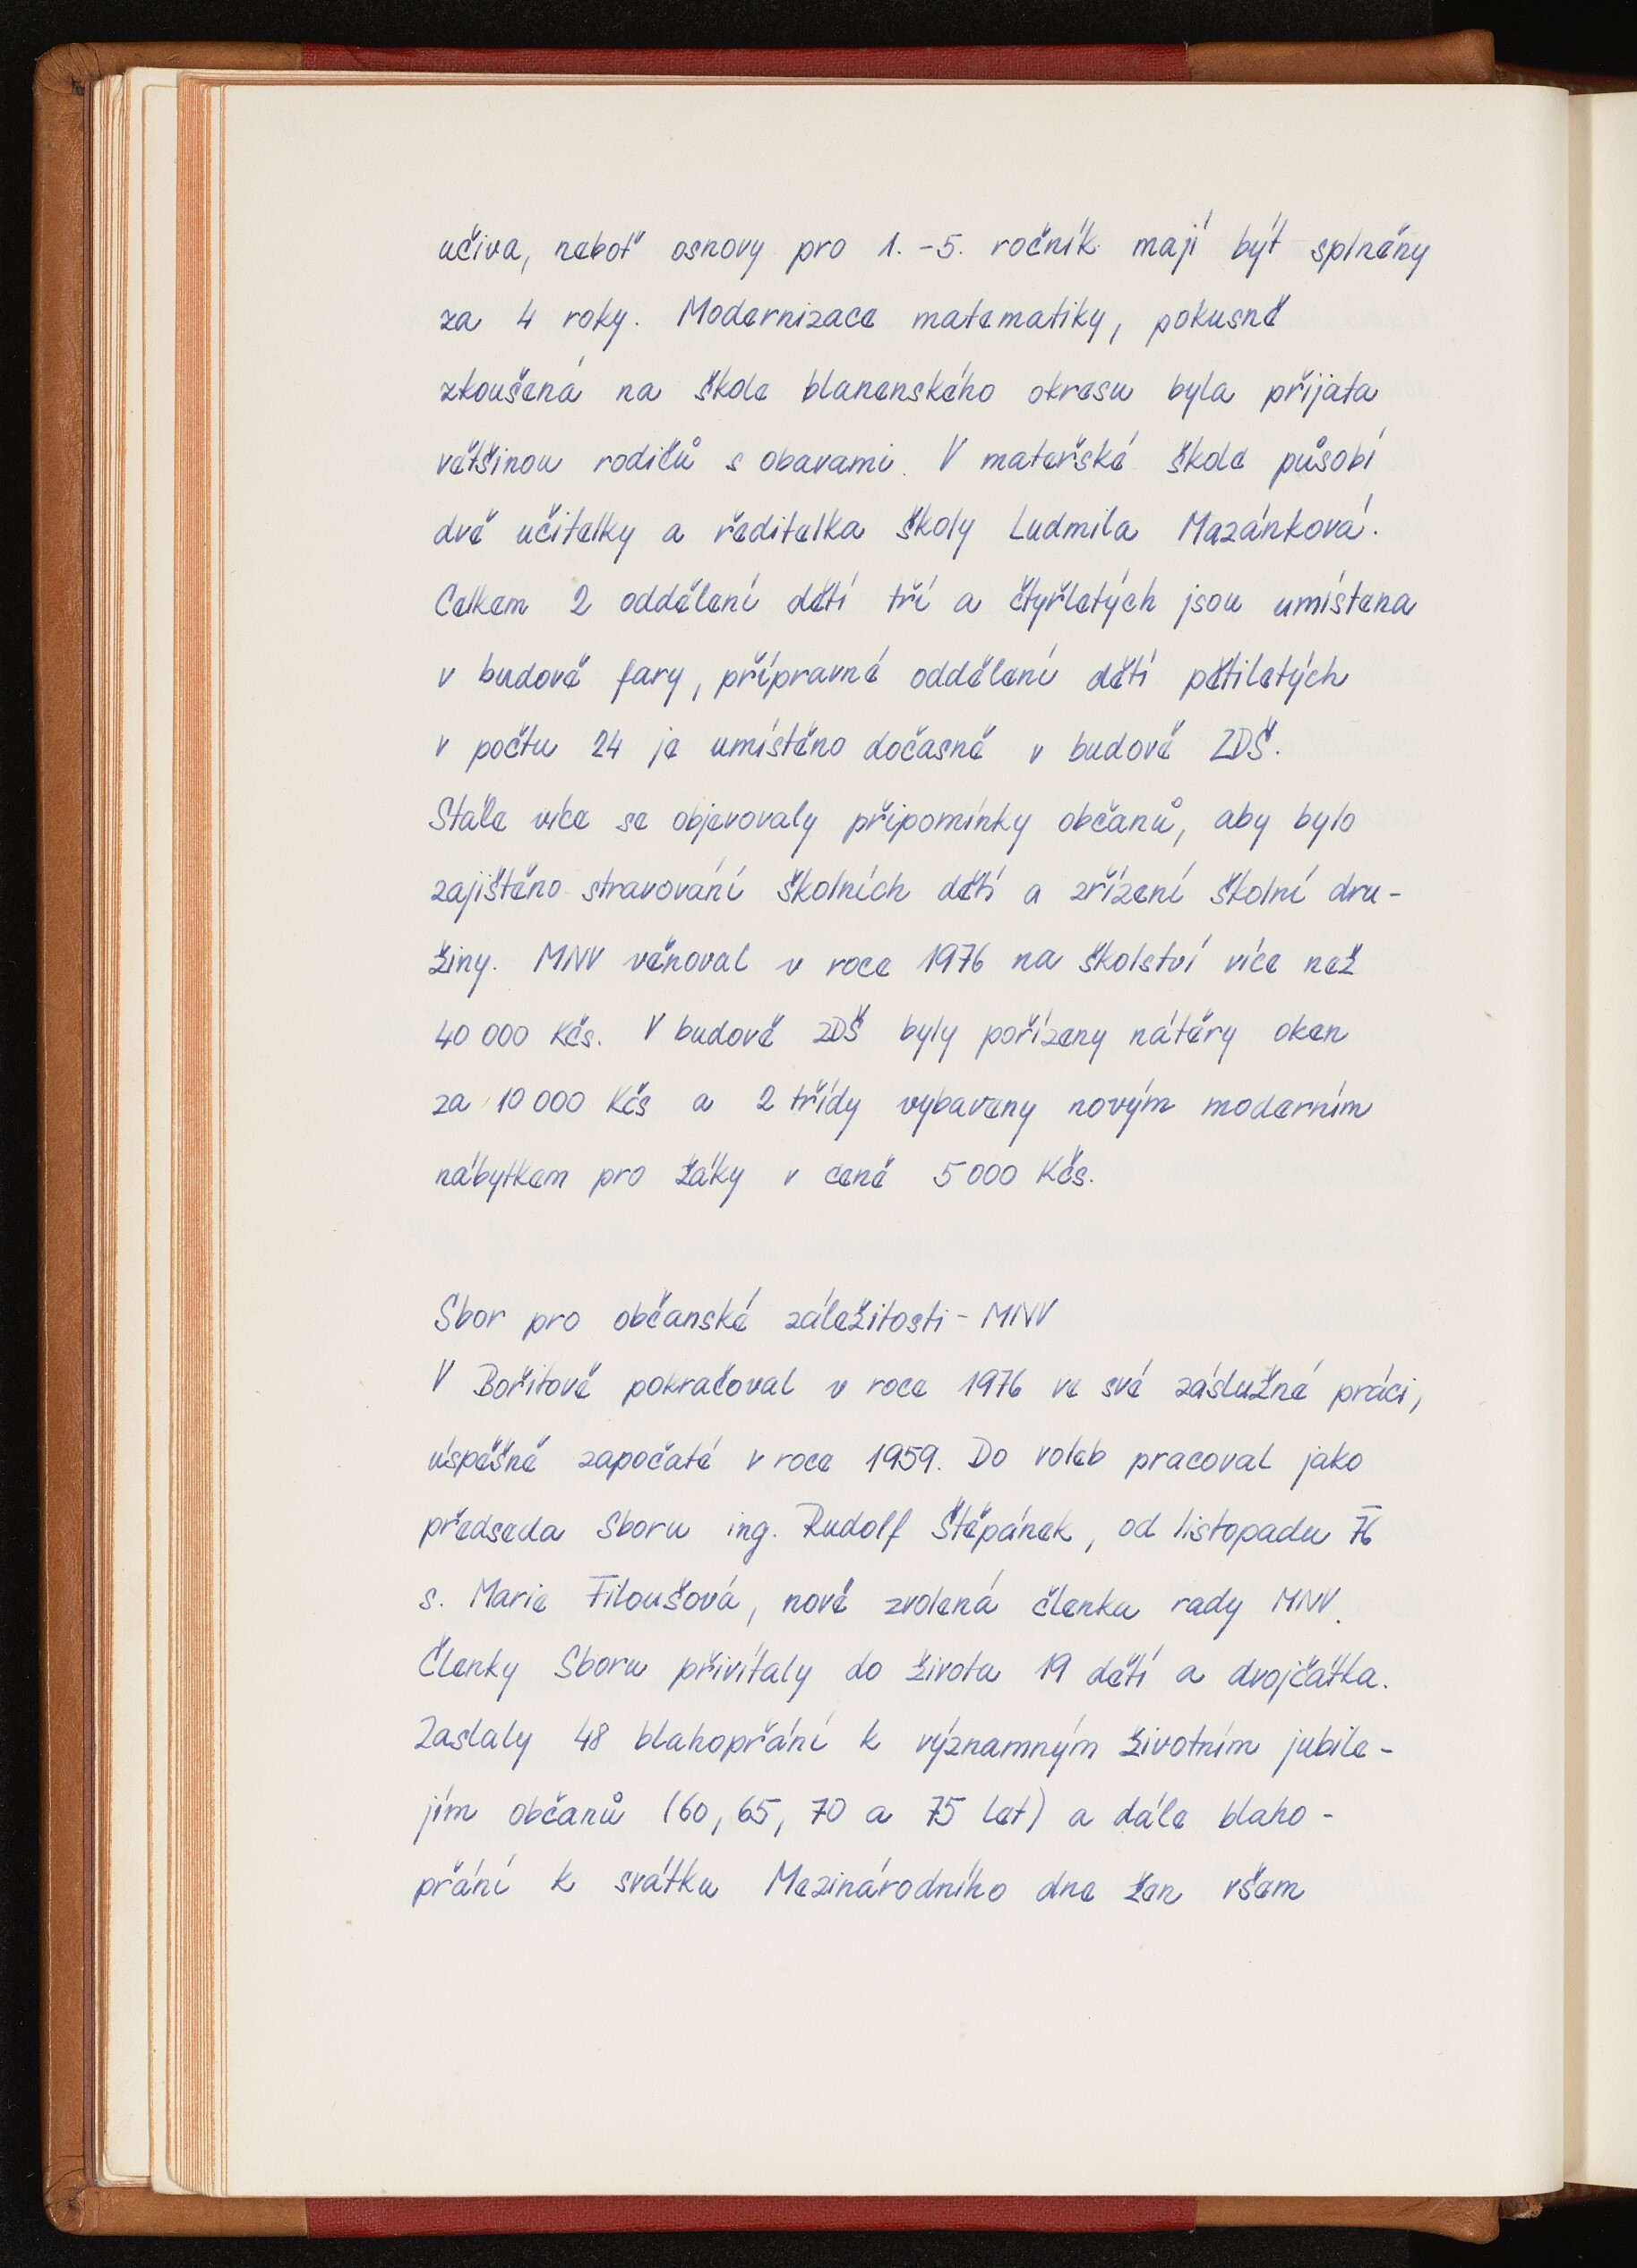 učiva, neboť osnovy pro 1.-5. ročník mají být splněny
za 4 roky. Modernizace matematiky, pokusně
zkoušená na škole blanenského okresu byla přijata
většinou rodičů s obavami. V mateřské škole působí
dvě učitelky a ředitelka školy Ludmila Mazánková.
Celkem 2 oddělení dětí tří a čtyřletých jsou umístena
v budově fary, přípravné oddělení dětí pětiletých
v počtu 24 je umístěno dočasně v budově ZDŠ.
Stále více se objevovaly připomínky občanů, aby bylo
zajištěno stravování školních dětí a zřízení školní dru-
žiny. MNV věnoval v roce 1976 na školství více než
40 000 Kčs. V budově ZDŠ byly pořízeny nátěry oken
za 10 000 Kčs a 2 třídy vybaveny novým moderním
nábytkem pro žáky v ceně 5 000 Kčs.
Sbor pro občanské záležitosti - MNV
V Bořitově pokračoval v roce 1976 ve své záslužné práci,
úspěšně započaté v roce 1959. Do voleb pracoval jako
předseda Sboru ing. Rudolf Štěpánek, od listopadu 76
s. Marie Filoušová, nově zvolená členka rady MNV.
Členky Sboru přivítaly do života 19 dětí a dvojčátka.
Zaslaly 48 blahopřání k významným životním jubile-
jím občanů (60, 65, 70 a 75 let) a dále blaho-
přání k svátku Mezinárodního dne žen všem